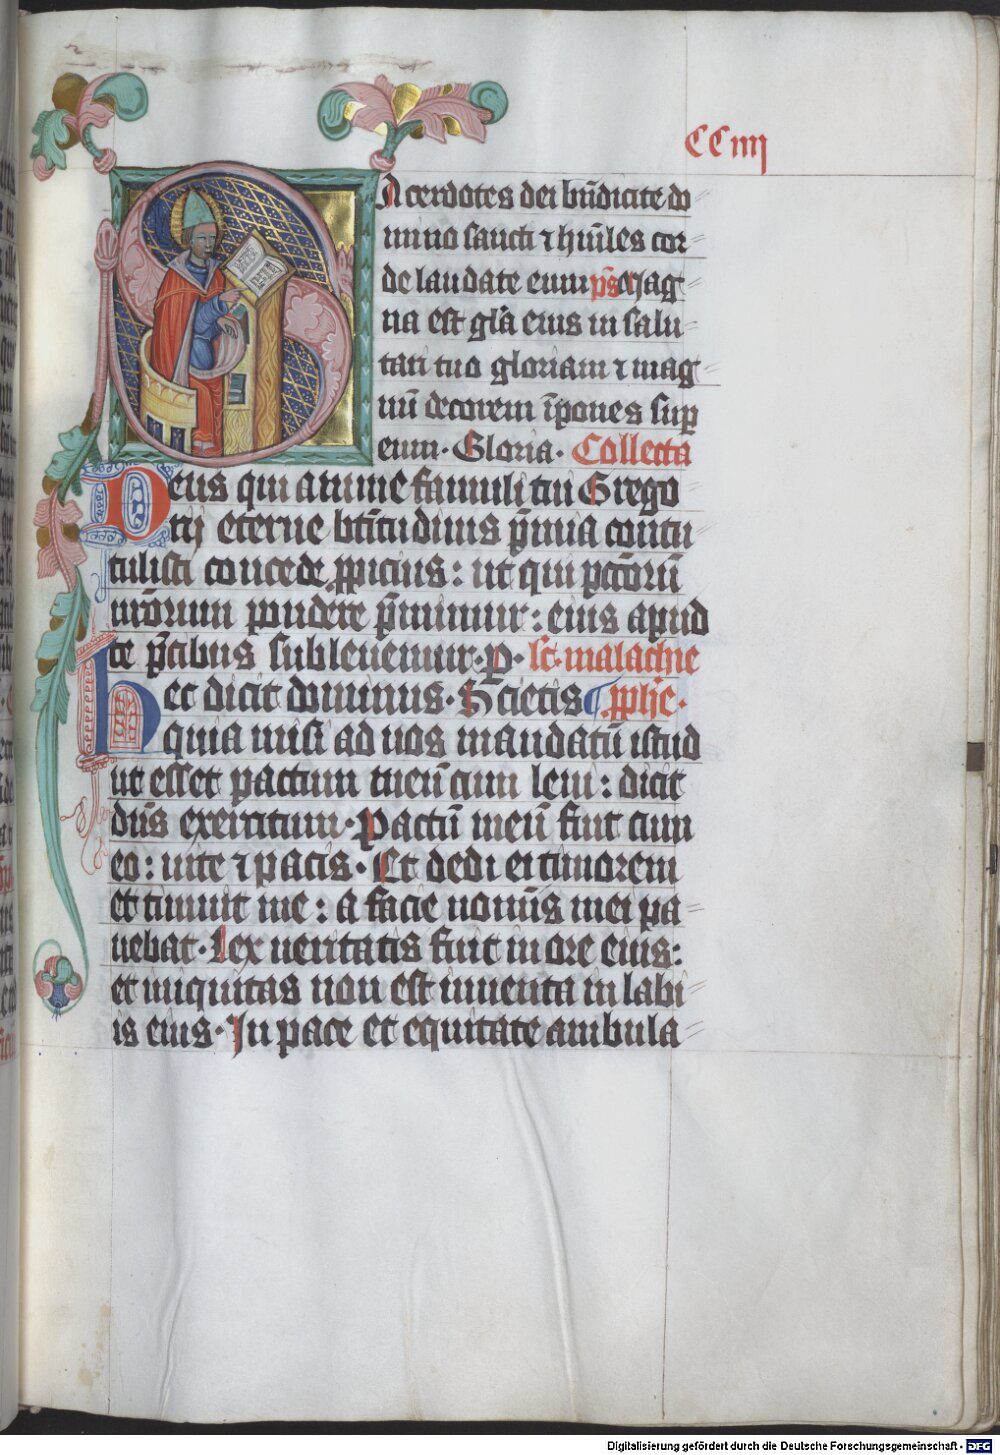 CCiiij
Acerdotes dei bn̄dicite do
mino sancti ⁊ hūiles cor
de laudate eum ps̄ Mag
na est glā eius in salu
tari tuo gloriam ⁊ mag
nū decorem īpones sup
eum · Gloria · Collecta
Deus qui anime famuli tui Grego
rij eterne bt̄itudinis p̄mia contu
tulisti concede ꝓpicius : ut qui pctōrū
nr̄orum pondere p̄mimur : eius apud
te p̄cibus subleuemur · P · sc̄i · malachie
Hec dicit dominus · Scietis ¶ ꝓphe ·
quia misi ad uos mandatū istud
ut esset pactum meū cum leui : dicit
dn̄s exercituum · Pactū meū fuit cum
eo : uite ⁊ pacis · Et dedi ei timorem
et timuit me : a facie nomīs mei pa
uebat · Lex ueritatis fuit in ore eius :
et iniquitas non est inuenta in labi
is eius · In pace et equitate ambula
Digitalisierung gefördert durch die Deutsche Forschungsgemeinschaft - DFG